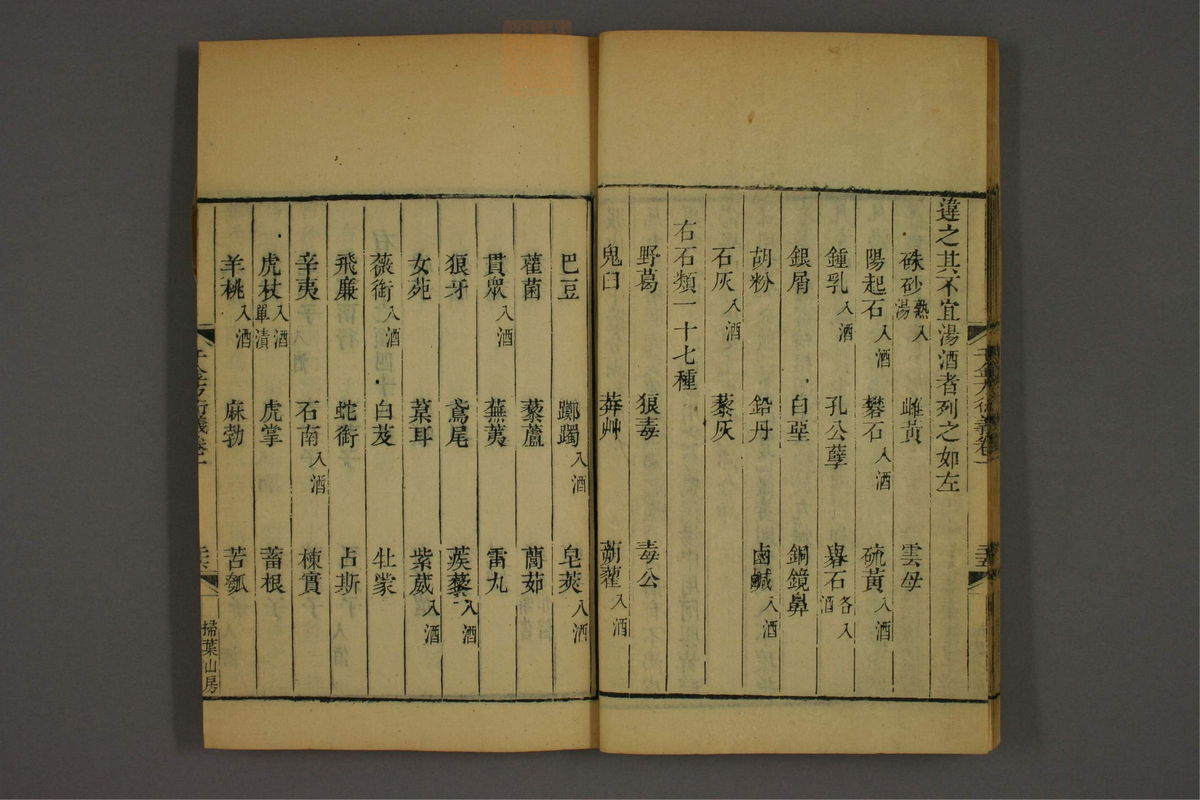 違之其不宜湯酒者列之如左
硃砂熟入湯 雌黃 雲母
陽起石入酒 礬石入酒 硫黃入酒
鍾乳入酒 孔公孽 礜石各入酒
銀屑 白堊 銅鏡鼻
胡粉 鉛丹 鹵鹹入酒
石灰入酒 藜灰
右石類一十七種
野葛 狼毒 毒公
鬼臼 莽艸 蒴藋入酒
巴豆 躑躅入酒 皂莢入酒
雚菌 藜蘆 䕡茹
貫眾入酒 蕪荑 雷丸
狼牙 鳶尾 蒺藜入酒
女菀 葈耳 紫葳入酒
薇銜入酒 白芨 牡蒙
飛廉 蛇銜 占斯
辛夷 石南入酒 楝實
虎杖入酒單漬 虎掌 蓄根
羊桃入酒 麻勃 苦瓠
千金方衍義卷一
掃葉山房